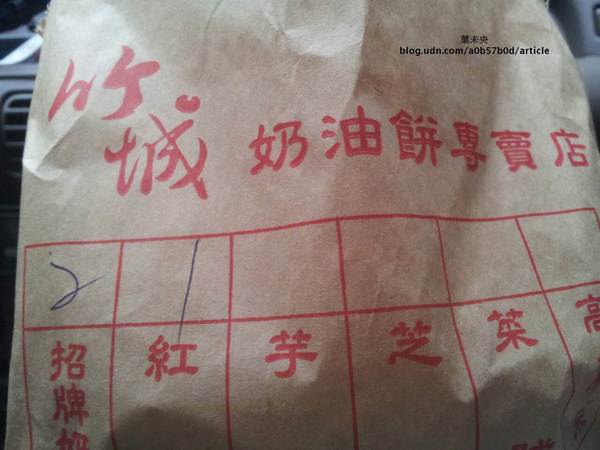 葉未央
blog.udn.com/a0b57b0d/article
竹城
奶油餅專賣店
2 1
招牌奶 紅 芋 芝 菜 高